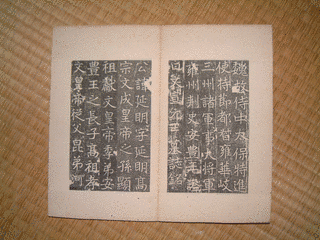 魏故侍中太保特進
使持節都督雍華岐
三州諸軍事大將軍
雍州刺史安豐王謚
曰文宣元王墓誌銘
公諱延明字延明高
宗文成皇帝之孫顯
祖獻文皇帝季弟安
豐王之長子高祖孝
文皇帝從父昆弟河